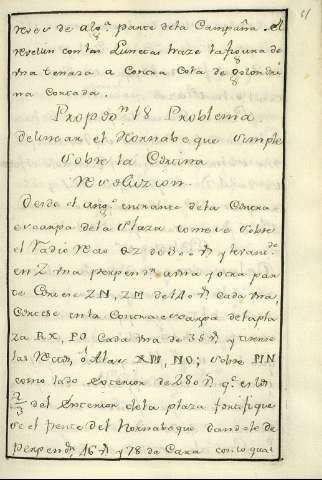 de alg.ª parte dela Campaña. el
revelin con las Lunetas haze la figura de
una tenaza o Contra Cola de golondri
na Cortada.
Propo.on 18 Problema
delinear el Hornabeque simple
sobre la Cortina
Resoluzion.
Desde el ang.o entrante dela Contra
escarpa dela Plaza tomese sobre
el Radio recto OZ de 80 t
en Z una perpend.r a una y otra par
te tirese ZN, ZM de 140 t cada una,
en la Contraescarpa dela pla
za RX, PO Cada una de 35 t y tirense
las Rectas o Alas XM, NO; sobre MN
como lado Exterior de 280 t q.e es los
2/3 del Exterior dela plaza fortifique
se el frente del Hornabeque dandole de
perpend.r 46 t y 78 de Cara con lo qual